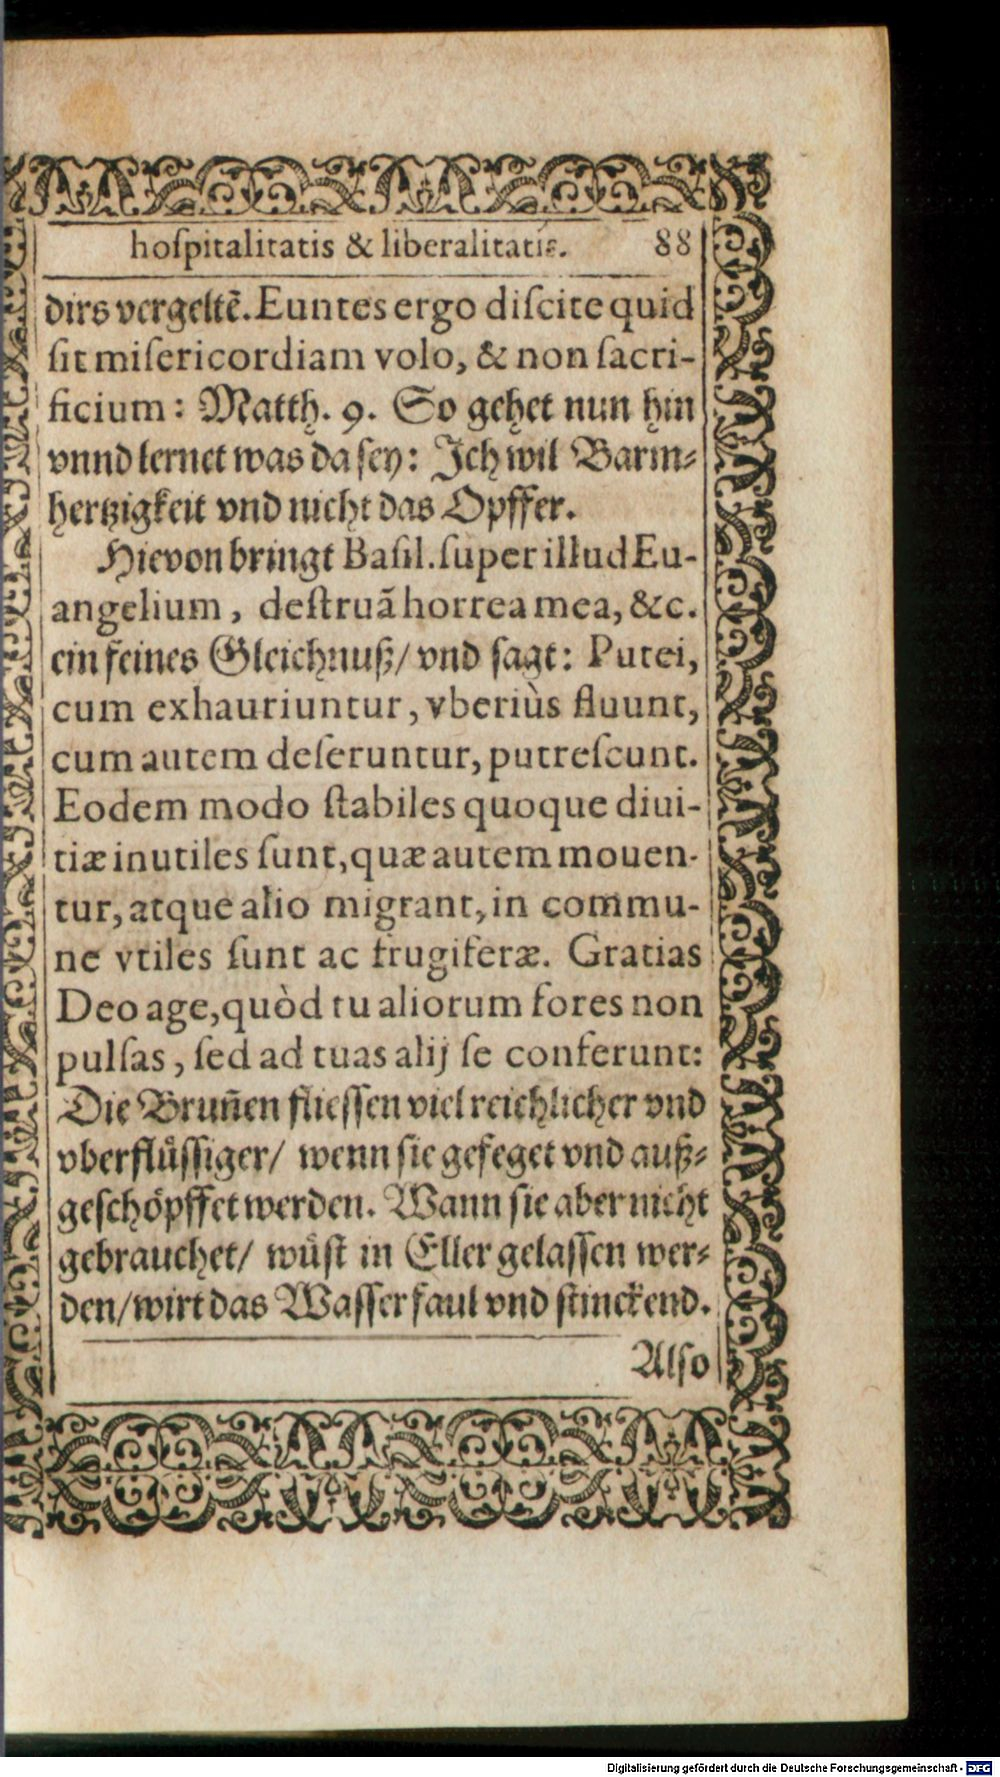 hoſpitalitatis & liberalitatis. 88
dirs vergeltẽ. Euntes ergo diſcite quid
ſit miſericordiam volo, & non ſacri-
ficium: Matth. 9. So gehet nun hin
vnnd lernet was da ſey: Ich wil Barm-
hertzigkeit vnd nicht das Opffer.
Hievon bringt Baſil. ſuper illud Eu-
angelium, deſtruã horrea mea, &c.
ein feines Gleichnuß/ vnd ſagt: Putei,
cum exhauriuntur, vberiùs fluunt,
cum autem deſeruntur, putreſcunt.
Eodem modo ſtabiles quoque diui-
tiæ inutiles ſunt, quæ autem mouen-
tur, atque alio migrant, in commu-
ne vtiles ſunt ac frugiferæ. Gratias
Deo age, quòd tu aliorum fores non
pulſas, ſed ad tuas alij ſe conferunt:
Die Brun̄en flieſſen viel reichlicher vnd
vberflüſſiger/ wenn ſie gefeget vnd auß-
geſchöpffet werden. Wann ſie aber nicht
gebrauchet/ wüſt in Eller gelaſſen wer-
den/ wirt das Waſſer faul vnd ſtinckend.
Alſo
Digitalisierung gefördert durch die Deutsche Forschungsgemeinschaft - DFG